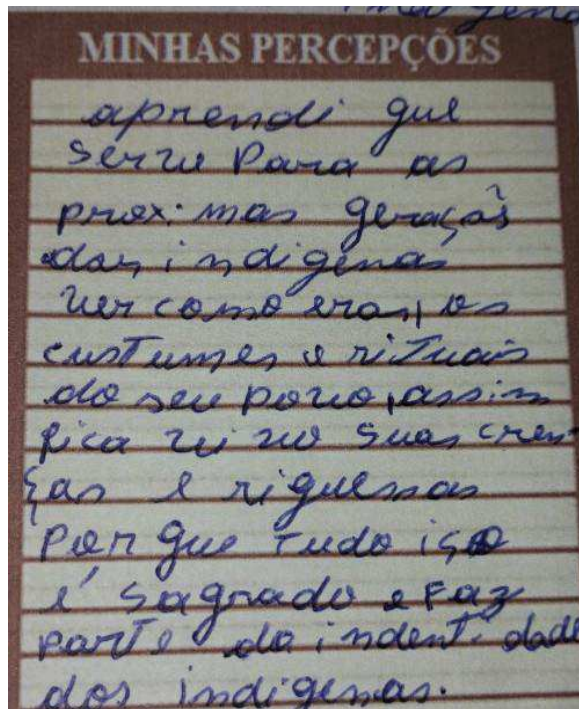 MINHAS PERCEPÇÕES
aprendi que
serve Para as
proximas geraçãs
das indigenas
ver como eram os
custumes e rituais
do seu povo, assim
fica vivo suas cren
ças e riquessas
Por que tudo iso
é sagrado e Faz
parte da indentidade
dos indigenas.